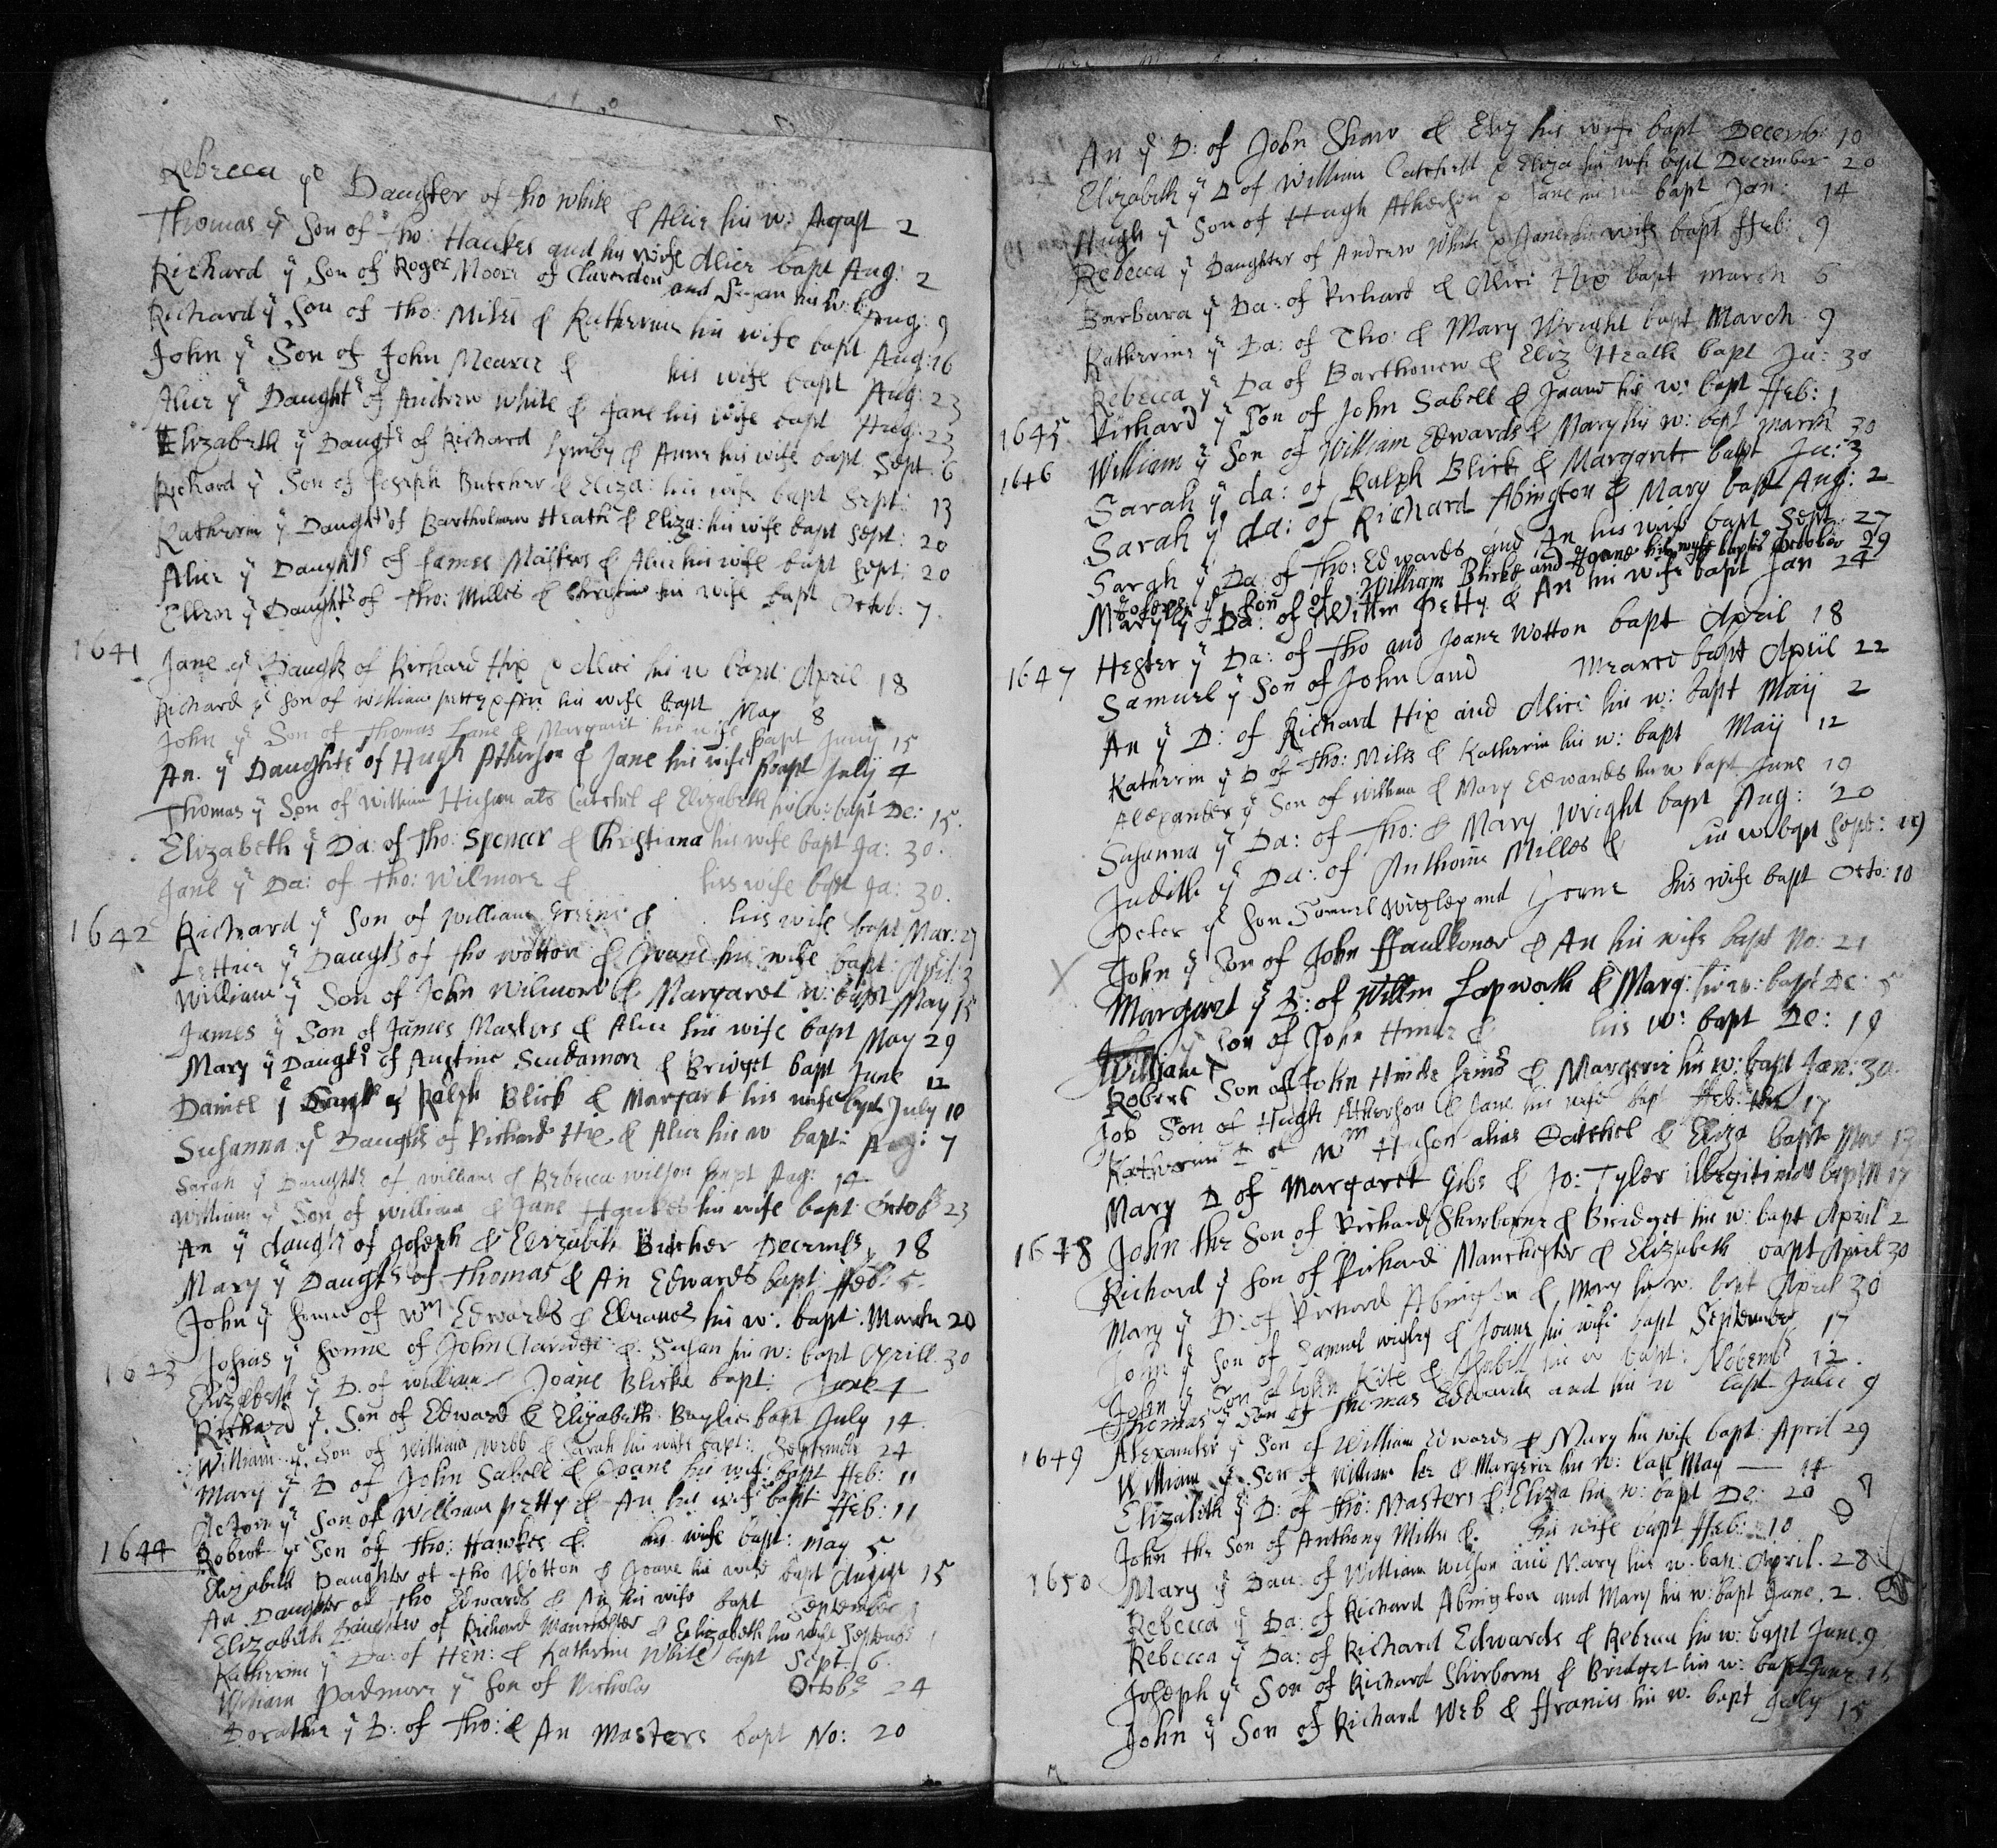 Rebecca ye Daughter of tho white & Alice his w: August 2
Thomas ye Son of Tho: Hawkes and his wife Alice bapt Aug: 2
Richard ye Son of Roger Moore of Claverdon and Susan his w: b Aug: 9
Richard ye Son of Tho: Miles & Katherine his wife bapt Aug: 16
John ye Son of John Mearce & his wife bapt Aug: 23
Alice ye Daught of Andrew White & Jane his wife bapt Aug: 23
Elizabeth ye Daught of Richard & Anne his wife bapt Sept: 6
Richard ye Son of Joseph Butcher & Eliza: his wife bapt Sept: 13
Katherin ye Daught of Bartholmew Heath & Eliza: his wife bapt Sept: 20
Alice ye Daught of James Masters & Alice his wife bapt Sept: 20
Ellen ye Daught of Tho: Milles & Christian his wife bapt Octob: 7
1641 Jane ye Daught of Richard Hix & Alice his w bapt: April 18
Richard ye Son of William petty & An his wife bapt May 8
John ye Son of Thomas Lane & Margaret his wife bapt Juny 15
An. ye Daught of Hugh Atkerson & Jane his wife bapt July 4
Thomas ye Son of William als Catchel & Elizabeth his w: bapt De: 15.
Elizabeth ye Da: of Tho: Spencer & Christiana his wife bapt Ja: 30.
Jane ye Da: of Tho: Wilmore & his wife bapt Ja: 30.
1642 Richard ye Son of William Greene & his wife bapt Mar: 27
Lettice ye Daught of tho wotton & Joane his wife bapt: April: 3
William ye Son of John Wilmore & Margaret w: bapt May 15
James ye Son of James Masters & Alice his wife bapt May 29
Mary ye Daught of Austine Scudamore & Bridget bapt June 12
Daniel ye of Ralph Blick & Margaret his wife bapt July 10
Susanna ye Daught of Richard Hix & Alice his w bapt: Aug: 7
Sarah ye Daught of William & Rebecca Wilson bapt Aug: 14
William ye Son of William & Jane Hawkes his wife bapt Octob 23
An ye daught of Joseph & Elizabeth Butcher Decemb 18
Mary ye Daught of Thomas & An Edwards bapt: ffeb: 5.
John ye sonne of Wm Edwards & Eleanor his w: bapt: March 20
1643 Josias ye sonne of John Claridge & Susan his w: bapt Aprill 30
Elizabeth ye D. of William Joane Blicke bapt: June 4
Richard ye Son of Edward & Elizabeth Baylie bapt July 14
William ye Son of William Webb & Sarah his wife bapt: September 24
Mary ye D of John Sabell & Joane his wife bapt ffeb: 11
ye Son of William petty & An his wife bapt ffeb: 11
1644 Robert ye Son of Tho: Hawkes & his wife bapt: may 5
Elizabeth Daughter of tho Wotton & Joane his wife bapt August 15
An Daughter of tho Edwards & An his wife bapt September
Elizabeth Daughter of Richard Manchester & Elizabeth his wife Septemb
Katherine ye Da: of Hen: & Katherine White bapt Sept: 6.
William Padmore ye Son of Nicholas Octob: 24
Dorathie ye D: of Tho: & An Masters bapt No: 20
An ye D: of John Shaw & Eliz his wife bapt Decemb: 10
Elizabeth ye D of William Catchell & Eliza his wife bapt December 20
Hugh ye Son of Hugh Atkerson & Jane his wife bapt Jan: 14
Rebecca ye Daughter of Andrew White & Jane his wife bapt ffeb: 9
Barbara ye Da: of Richard & Alice Hix bapt march 6
Katherine ye Da: of Tho: & Mary Wright bapt March 9
Rebecca ye Da of Bartholmew & Eliz Heath bapt Ja: 30
1645 Richard ye Son of John Sabell & Joane his w: bapt ffeb: 1
1646 William ye Son of William Edwards & Mary his w: bapt march 30
Sarah ye da: of Ralph Blick & Margaret bapt Ju: 3
Sarah ye da: of Richard Abington & Mary bapt Aug: 2
Sarah ye Da: of Tho: Edwards and An his wife bapt Sept. 27
ye Son of William Blicke and Joane his wyfe baptis October 29
Mary ye Da: of Willm Petty & An his wife bapt Jan 24
1647 Hester ye Da: of Tho and Joane Wotton bapt April 18
Samuel ye Son of John and Mearce bapt April 22
An ye D: of Richard Hix and Alice his w: bapt Maij 2
Katherin ye D of Tho: Miles & Katherin his w: bapt Maij 12
Alexander ye Son of William & Mary Edwards his w bapt June 19
Susanna ye Da: of Tho: & Mary Wright bapt Aug: 20
Judith ye Da: of Anthonie Milles & his w bapt Sept: 19
Peter ye son Samuel Wigley and Joane his wife bapt Octo: 10
X John ye Son of John ffaulkoner & An his wife bapt No: 21
Margaret ye D: of Willm Lapworth & Marg: his w: bapt De: 5
William ye Son of John & his w: bapt De: 19
Robert Son of John Hinde & Margerie his w: bapt Jan: 30.
Job Son of Hugh Atkerson & Jane his wife bapt ffeb: the 17
Katherin D of Wm alias Catchel & Eliza bapt Mar 13
Mary D of Margaret Gibs & Jo: Tyler illegitimat bapt M 17
1648 John the Son of Richard Shirborne & Bridget his w: bapt April 2
Richard ye Son of Richard Manchester & Elizabeth bapt April 30
Mary ye D: of Richard Abington & Mary his w. bapt April 30
John ye Son of Samuel wigley & Joane his wife bapt September 17
John ye Son of John Kite & his w bapt: Novemb 12.
Thomas ye Son of Thomas Edwards and his w bapt Julie 9
1649 Alexander ye Son of William Edwards & Mary his wife bapt: April 29
William ye Son of William & Margerie his w: bapt May — 14
Elizabeth ye D: of Tho: Masters & Eliza his w: bapt De: 20
John the Son of Anthony Milles & his wife bapt ffeb: 10
1650 Mary ye Dau: of William Wilson and Mary his w. bap: April. 28
Rebecca ye Da: of Richard Abington and Mary his w: bapt June. 2.
Rebecca ye Da: of Richard Edwards & Rebecca his w: bapt June. 9
Joseph ye Son of Richard Shirborne & Bridget his w: bapt June 16
John ye Son of Richard Web & ffrancis his w. bapt July 15